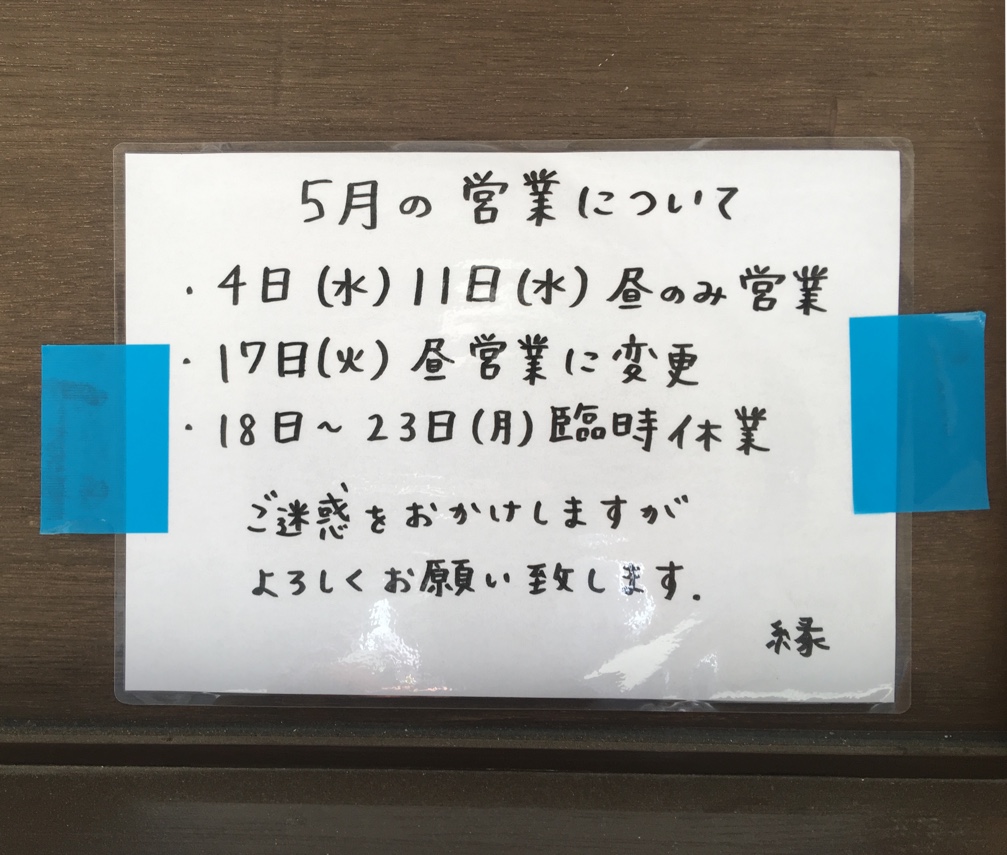 5月の営業について
・4日(水)11日(水)昼のみ営業
・17日(火)昼営業に変更
・18日~23日(月)臨時休業
ご迷惑をおかけしますが
よろしくお願い致します.
縁